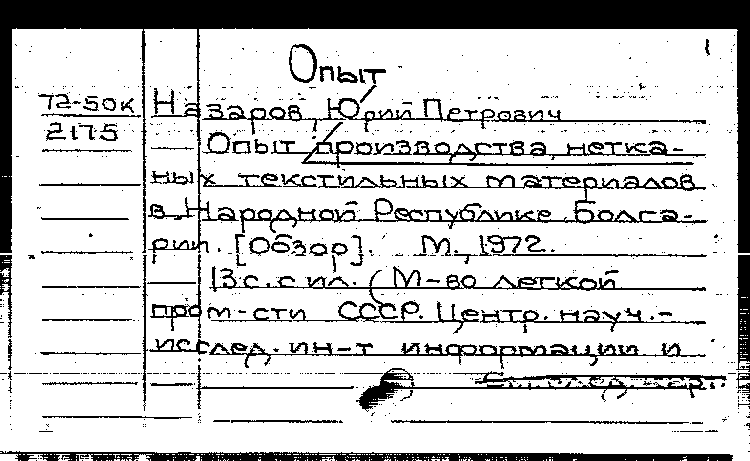 1
Опыт
72-50к Назаров, Юрий Петрович
2175 Опыт производства нетка-
ных текстильных материалов
в Народной Республике Болга-
рии. [Обзор]. М., 1972.
13 с. с ил. (М-во легкой
пром-сти СССР. Центр. науч.-
исслед. ин-т информации и
См. след. кар.